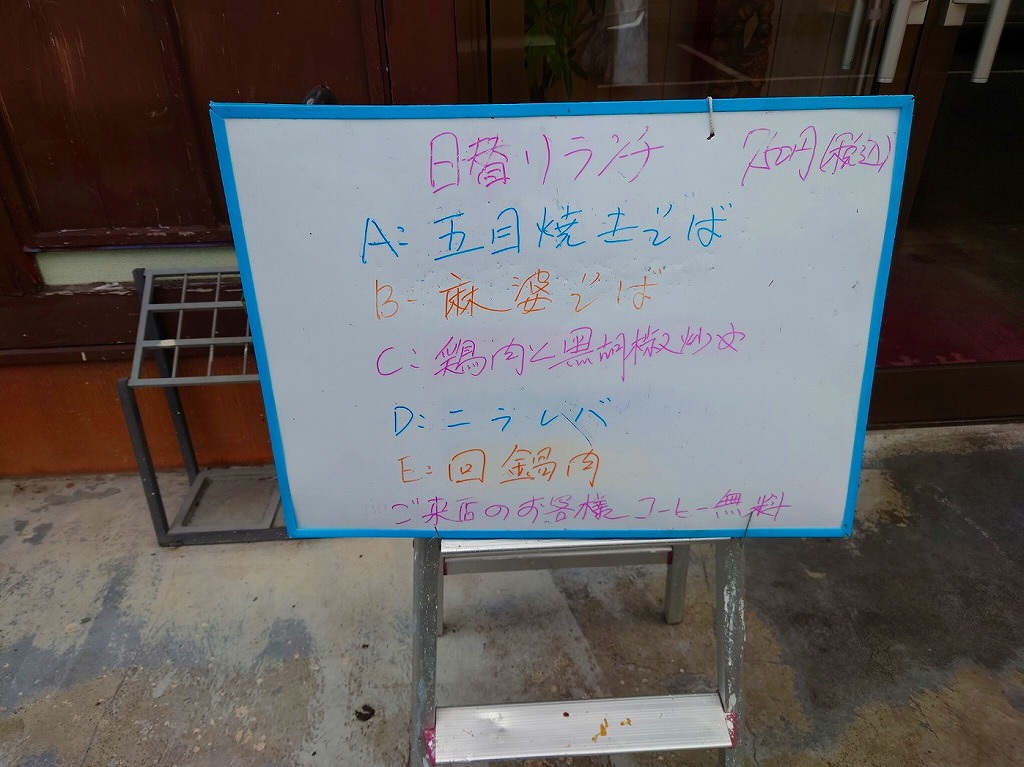 日替りランチ 750円(税込)
A:五目焼きそば
B:麻婆そば
C:鶏肉と黒胡椒炒め
D:ニラレバ
E:回鍋肉
ご来店のお客様 コーヒー無料